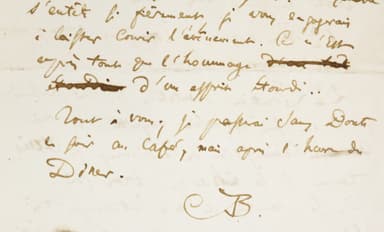 s'entêt si fièrement je vous engagerais
à laisser courir l'évènement. Ce n'est
après tout que l'hommage
d'un esprit étourdi..
Tout à vous; je passerai sans Dout
le soir au Café, mais après l'heure du
Dîner.
CB.